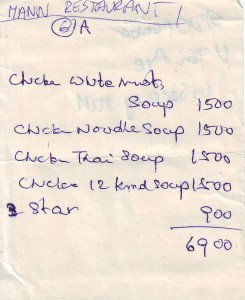 MANN RESTAURANT
6 A
Chicke White Mush
Soup 1500
Chicken Noodle Soup 1500
Chicken Thai Soup 1500
Chicke 12 kmd Soup 1500
3 Star 900
6900